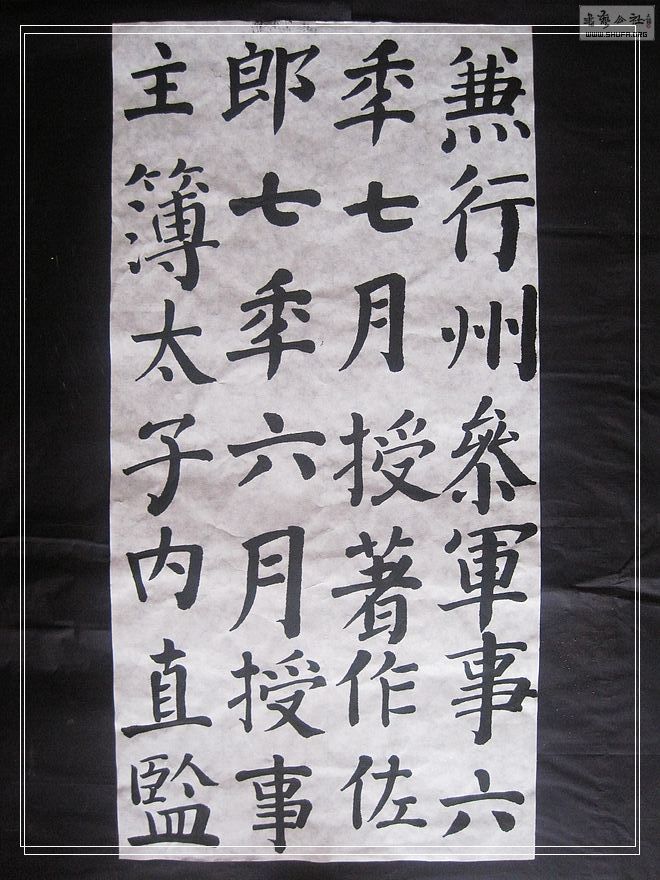 兼行州叅軍事六
秊七月授著作佐
郎七秊六月授事
主簿太子内直監
書藝公社
WWW.SHUFA.ORG